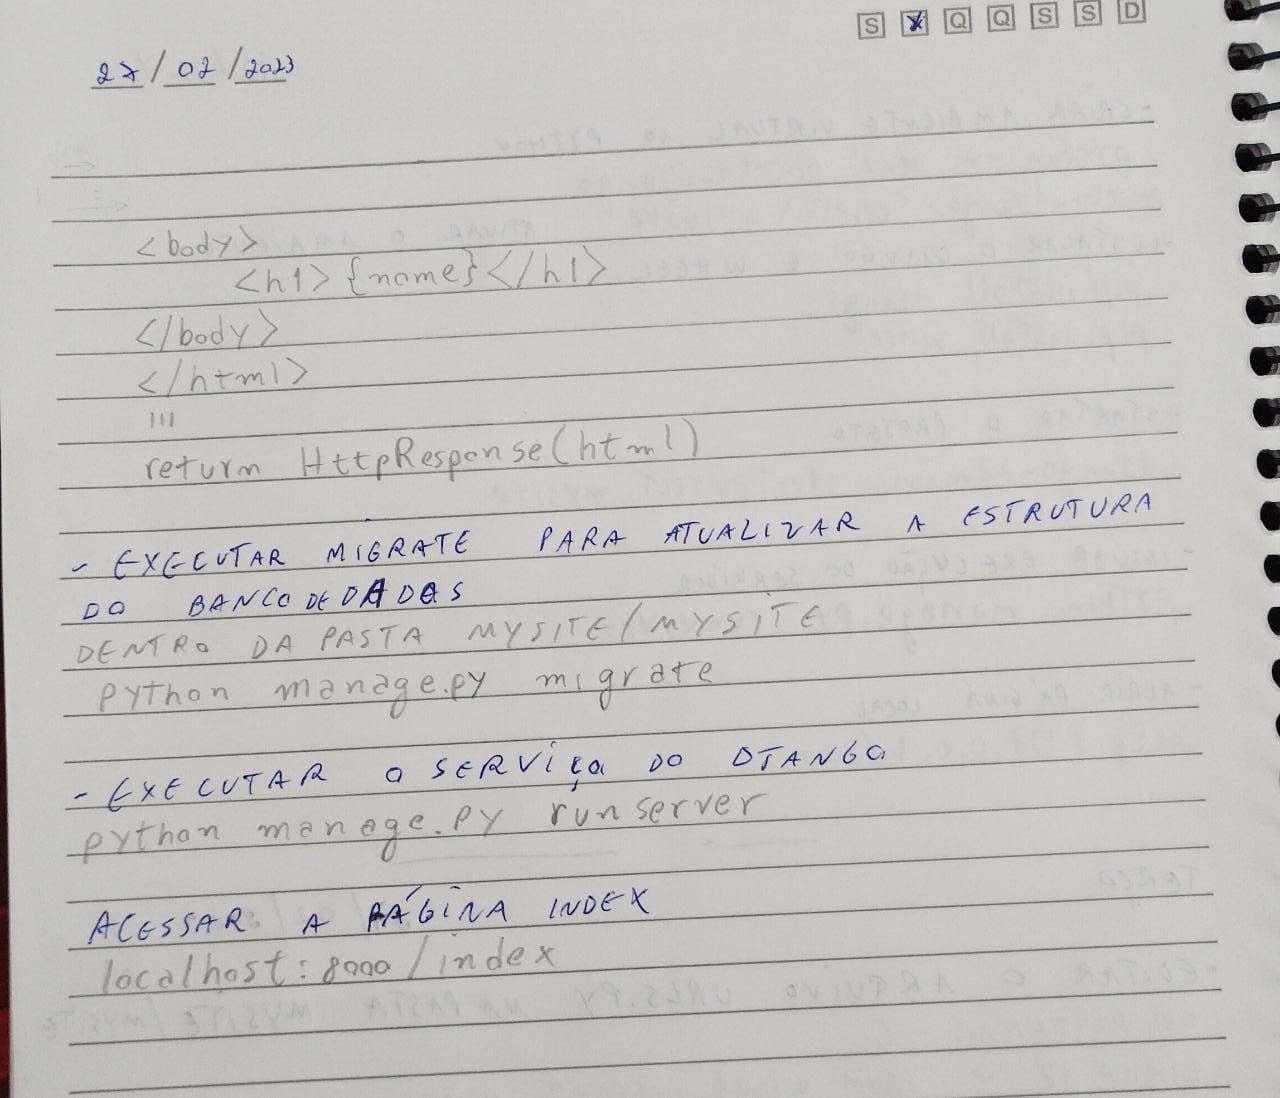 S X Q Q S S D
27/02/2023
<body>
<h1>{name}</h1>
</body>
</html>
'''
return HttpResponse(html)
- EXECUTAR MIGRATE PARA ATUALIZAR A ESTRUTURA
DO BANCO DE DADOS
DENTRO DA PASTA MYSITE/MYSITE
python manage.py migrate
- EXECUTAR O SERVIÇO DO DJANGO
python manage.py runserver
ACESSAR A PÁGINA INDEX
localhost:8000/index